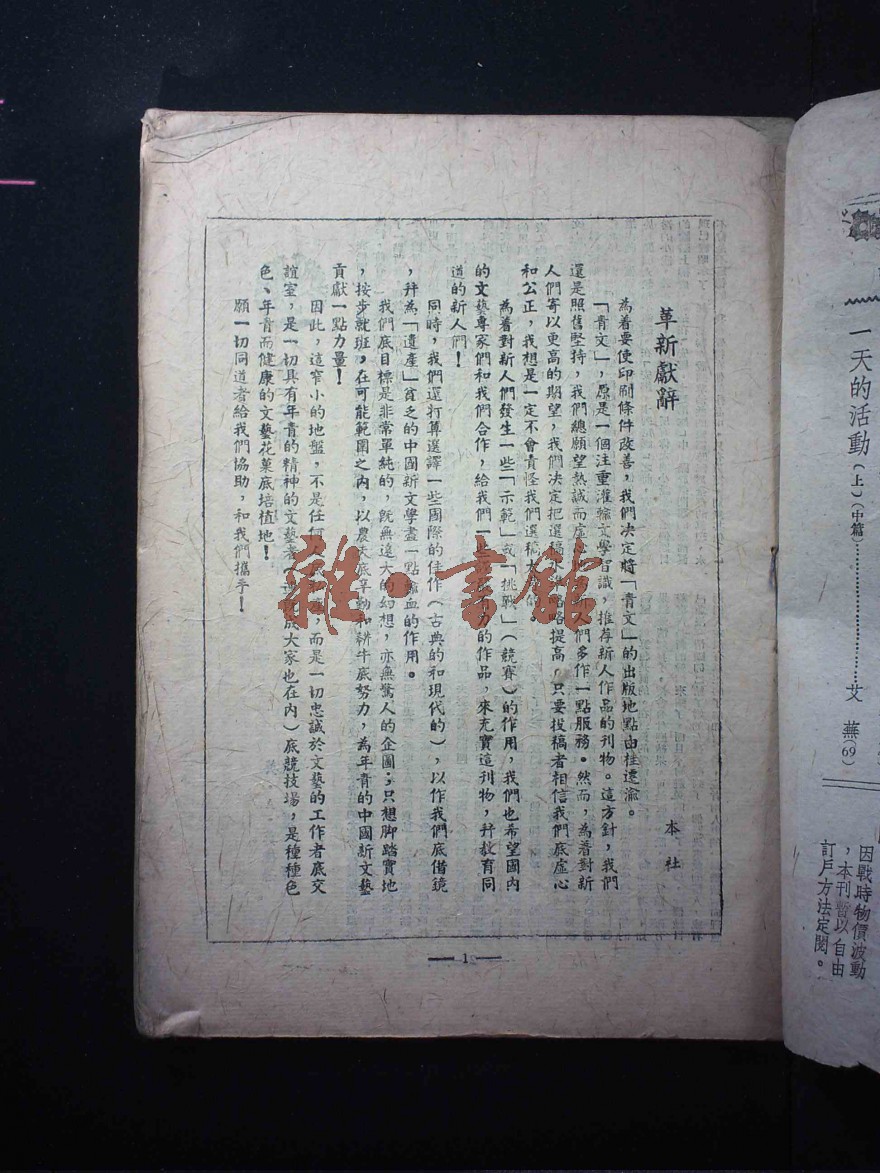 革新獻辭
本社
為着要使印刷條件改善，我們決定將「青文」的出版地點由桂遷渝。
「青文」，原是一個注重灌輸文學智識，推荐新人作品的刊物。這方針，我們
還是照舊堅持，我們總願望熱誠而虛心地為新人們多作一點服務。然而，為着對新
人們寄以更高的期望，我們決定把選稿水準略略提高，只要投稿者相信我們底虛心
和公正，我想是一定不會責怪我們選稿太苛的
為着對新人們發生一些「示範」或「挑戰」（競賽）的作用，我們也希望國内
的文藝專家們和我們合作，給我們一些 有力的作品，來充實這刊物，幷教育同
道的新人們！
同時，我們還打算選譯一些國際的佳作（古典的和現代的），以作我們底借鏡
，幷為「遺產」貧乏的中國新文學盡一點輸血的作用。
我們底目標是非常單純的，既無遠大的幻想，亦無驚人的企圖；只想脚踏實地
，按步就班，在可能範圍之內，以農夫底辛勤和耕牛底努力，為年青的中國新文藝
貢獻一點力量！
因此，這窄小的地盤，不是任何人底 ，而是一切忠誠於文藝的工作者底交
誼室，是一切具有年青的精神的文藝者（ 成大家也在內）底競技場，是種種色
色、年青而健康的文藝花菓底培植地！
願一切同道者給我們協助，和我們攜手！
— 1 —
雜·書館
一天的活動（上）（中篇）…………艾蕪(69)
因戰時物價波動
，本刊暫以自由
訂戶方法定閱。